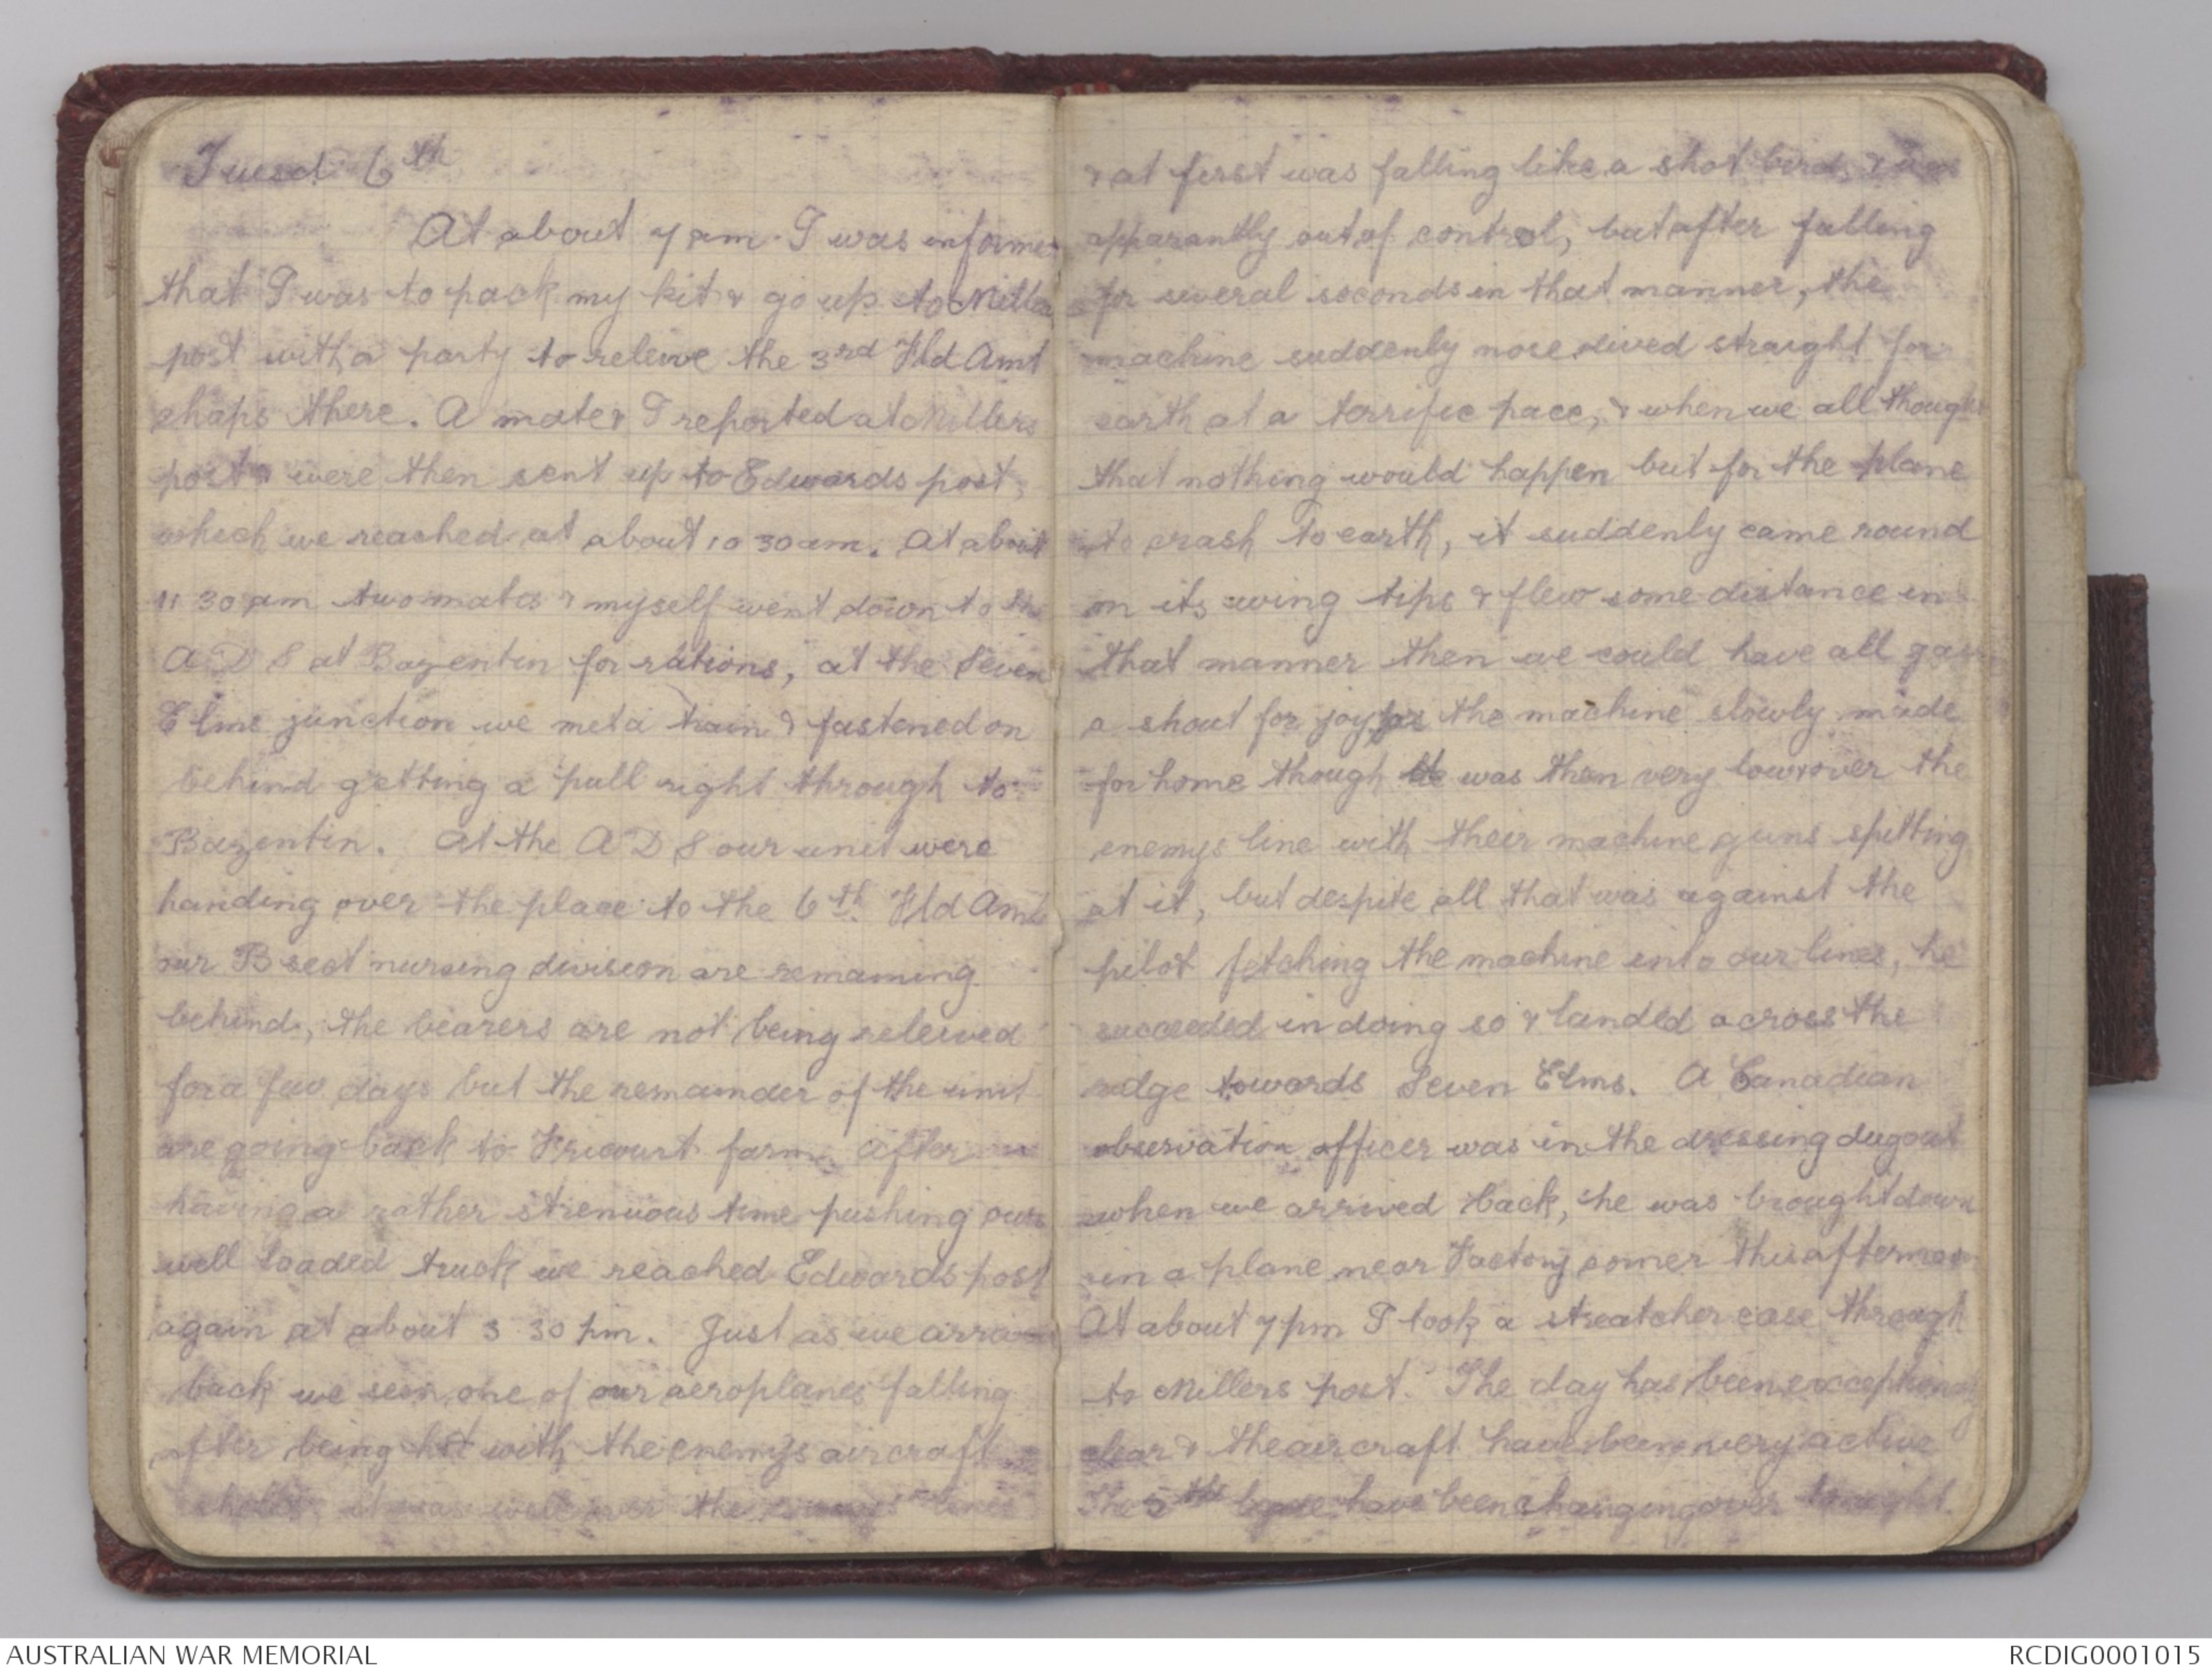 Tuesd. 6th
At about 7 am. I was informed
that I was to pack my kit & go up to Millers
post with a party to releive the 3rd Fld Amb
chaps there. A mate & I reported at Millers
post & were then sent up to Edwards post,
which we reached at about 10 30 am. At about
11 30 am two mates & myself went down to the
A D S at Bazentin for rations, at the Seven
Elms junction we met a train & fastened on
behind getting a pull right through to
Bazentin. At the A D S our unit were
handing over the place to the 6th Fld Amb
our B sect nursing division are remaining
behind, the bearers are not being releived
for a few days but the remainder of the unit
are going back to Fricourt farm. After
having a rather strenuous time pushing our
well loaded truck we reached Edwards post
again at about 3 30 pm. Just as we arrived
back we seen one of our aeroplanes falling
after being hit with the enemys aircraft
shells it was well over the enemys lines
& at first was falling like a shot bird, & was
apparantly out of control, but after falling
for several seconds in that manner, the
machine suddenly nose dived straight for
earth at a terrific pace, & when we all thought
that nothing would happen but for the plane
to crash to earth, it suddenly came round
on its wing tips & flew some distance in
that manner then we could have all gave
a shout for joy for the machine slowly made
for home though it was then very low & over the
enemys line with their machine guns spitting
at it, but despite all that was against the
pilot fetching the machine into our lines, he
succeeded in doing so & landed across the
ridge towards Seven Elms. A Canadian
observation officer was in the dressing dugout
when we arrived back, he was brought down
in a plane near Factory corner this afternoon
At about 7 pm I took a streatcher case through
to Millers post. The day has been exceptionaly
clear & the aircraft have been very active
The 5th bgde have been changing over tonight.
AUSTRALIAN WAR MEMORIAL
RCDIG0001015